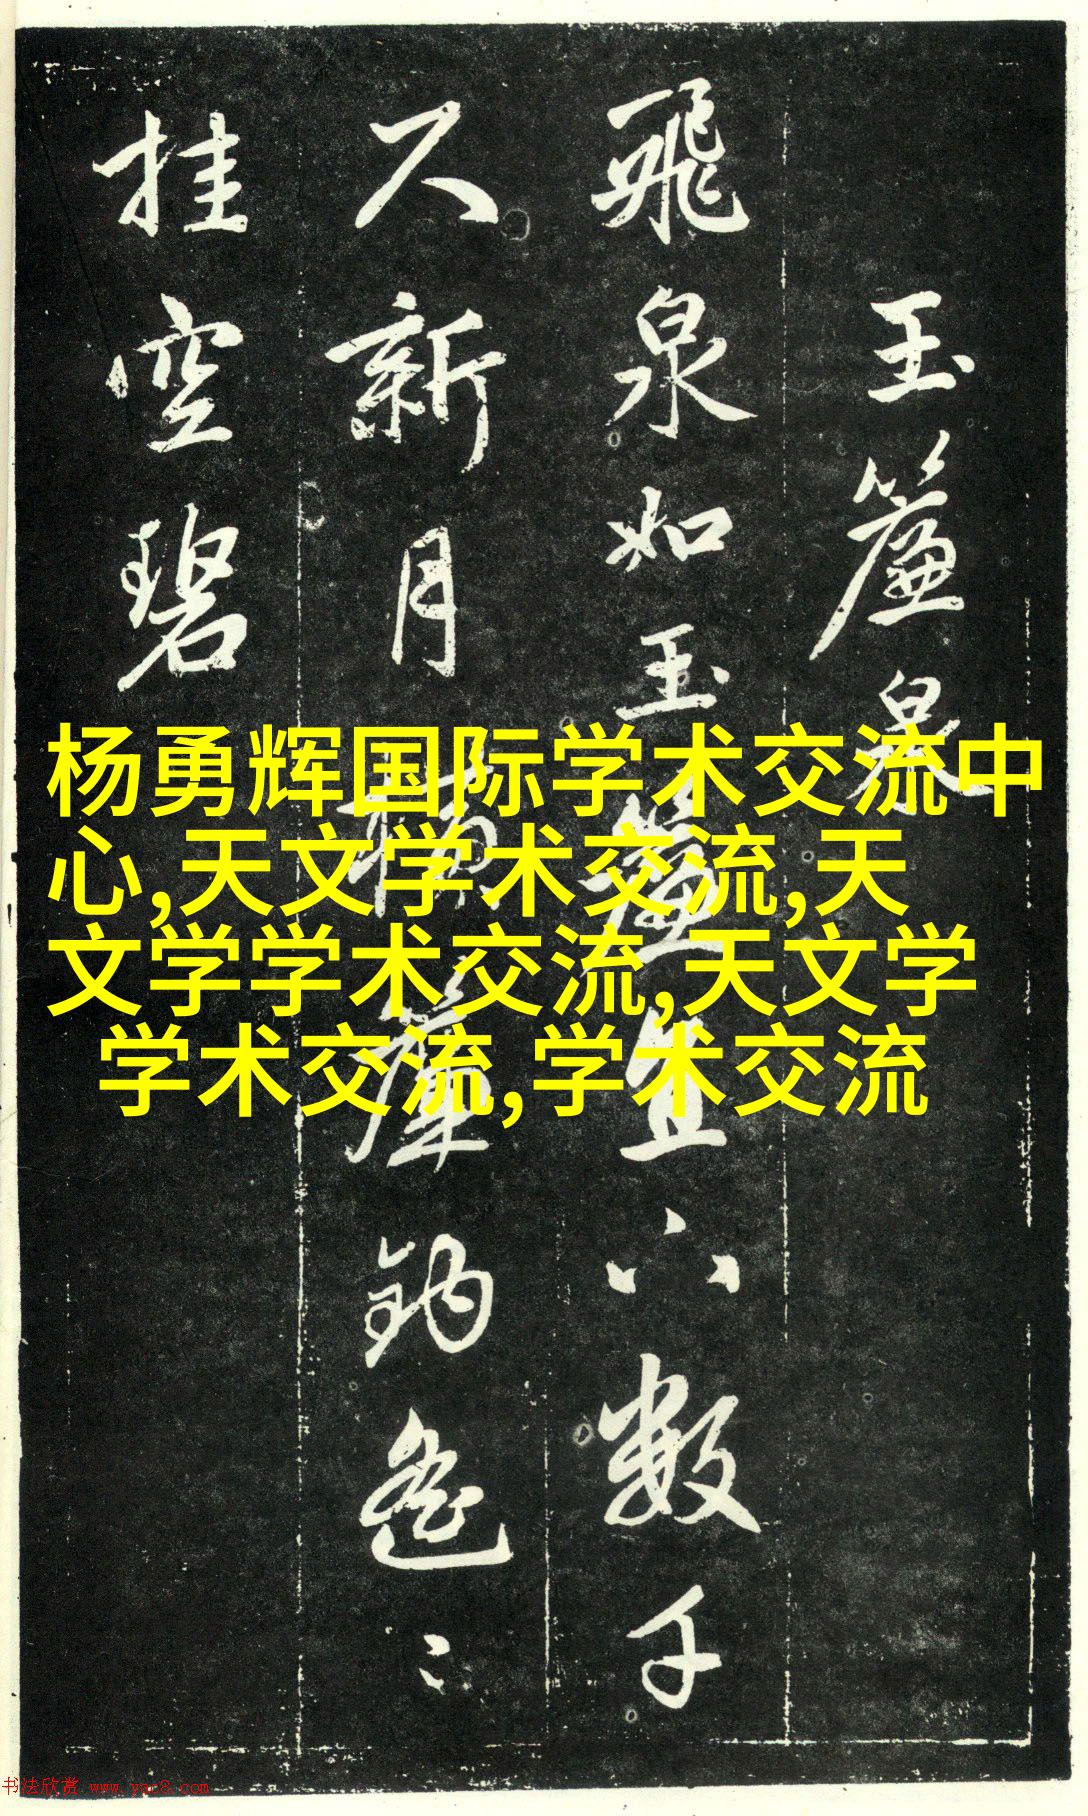 玉簾泉
飛泉如玉簾直下數千
尺新月橫簾鈎遙〻
挂空碧
杨勇辉国际学术交流中
心,天文学术交流,天
文学学术交流,天文学
学术交流,学术交流
书法欣赏 www.yac8.com